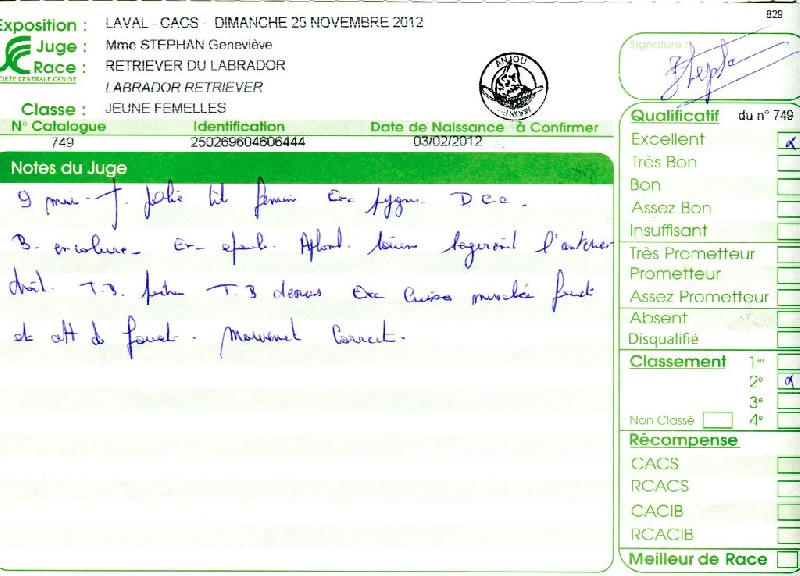 829
Exposition : LAVAL - CACS - DIMANCHE 25 NOVEMBRE 2012
Juge : Mme STEPHAN Geneviève
Race : RETRIEVER DU LABRADOR
SOCIÉTÉ CENTRALE CANINE
LABRADOR RETRIEVER
Classe : JEUNE FEMELLES
ANJOU
N° Catalogue Identification Date de Naissance à Confirmer
749 250269604606444 03/02/2012
Notes du Juge
9 mois - T. jolie tête féminin Exc
B. encolure - Ex
l'antérieur
droit. T.B. T.B dessus Exc Cuisse musclée fouet
et att de fouet. Mouvement Correct.
Signature :
Qualificatif du n° 749
Excellent
Très Bon
Bon
Assez Bon
Insuffisant
Très Prometteur
Prometteur
Assez Prometteur
Absent
Disqualifié
Classement 1er
2e
3e
Non Classé 4e
Récompense
CACS
RCACS
CACIB
RCACIB
Meilleur de Race